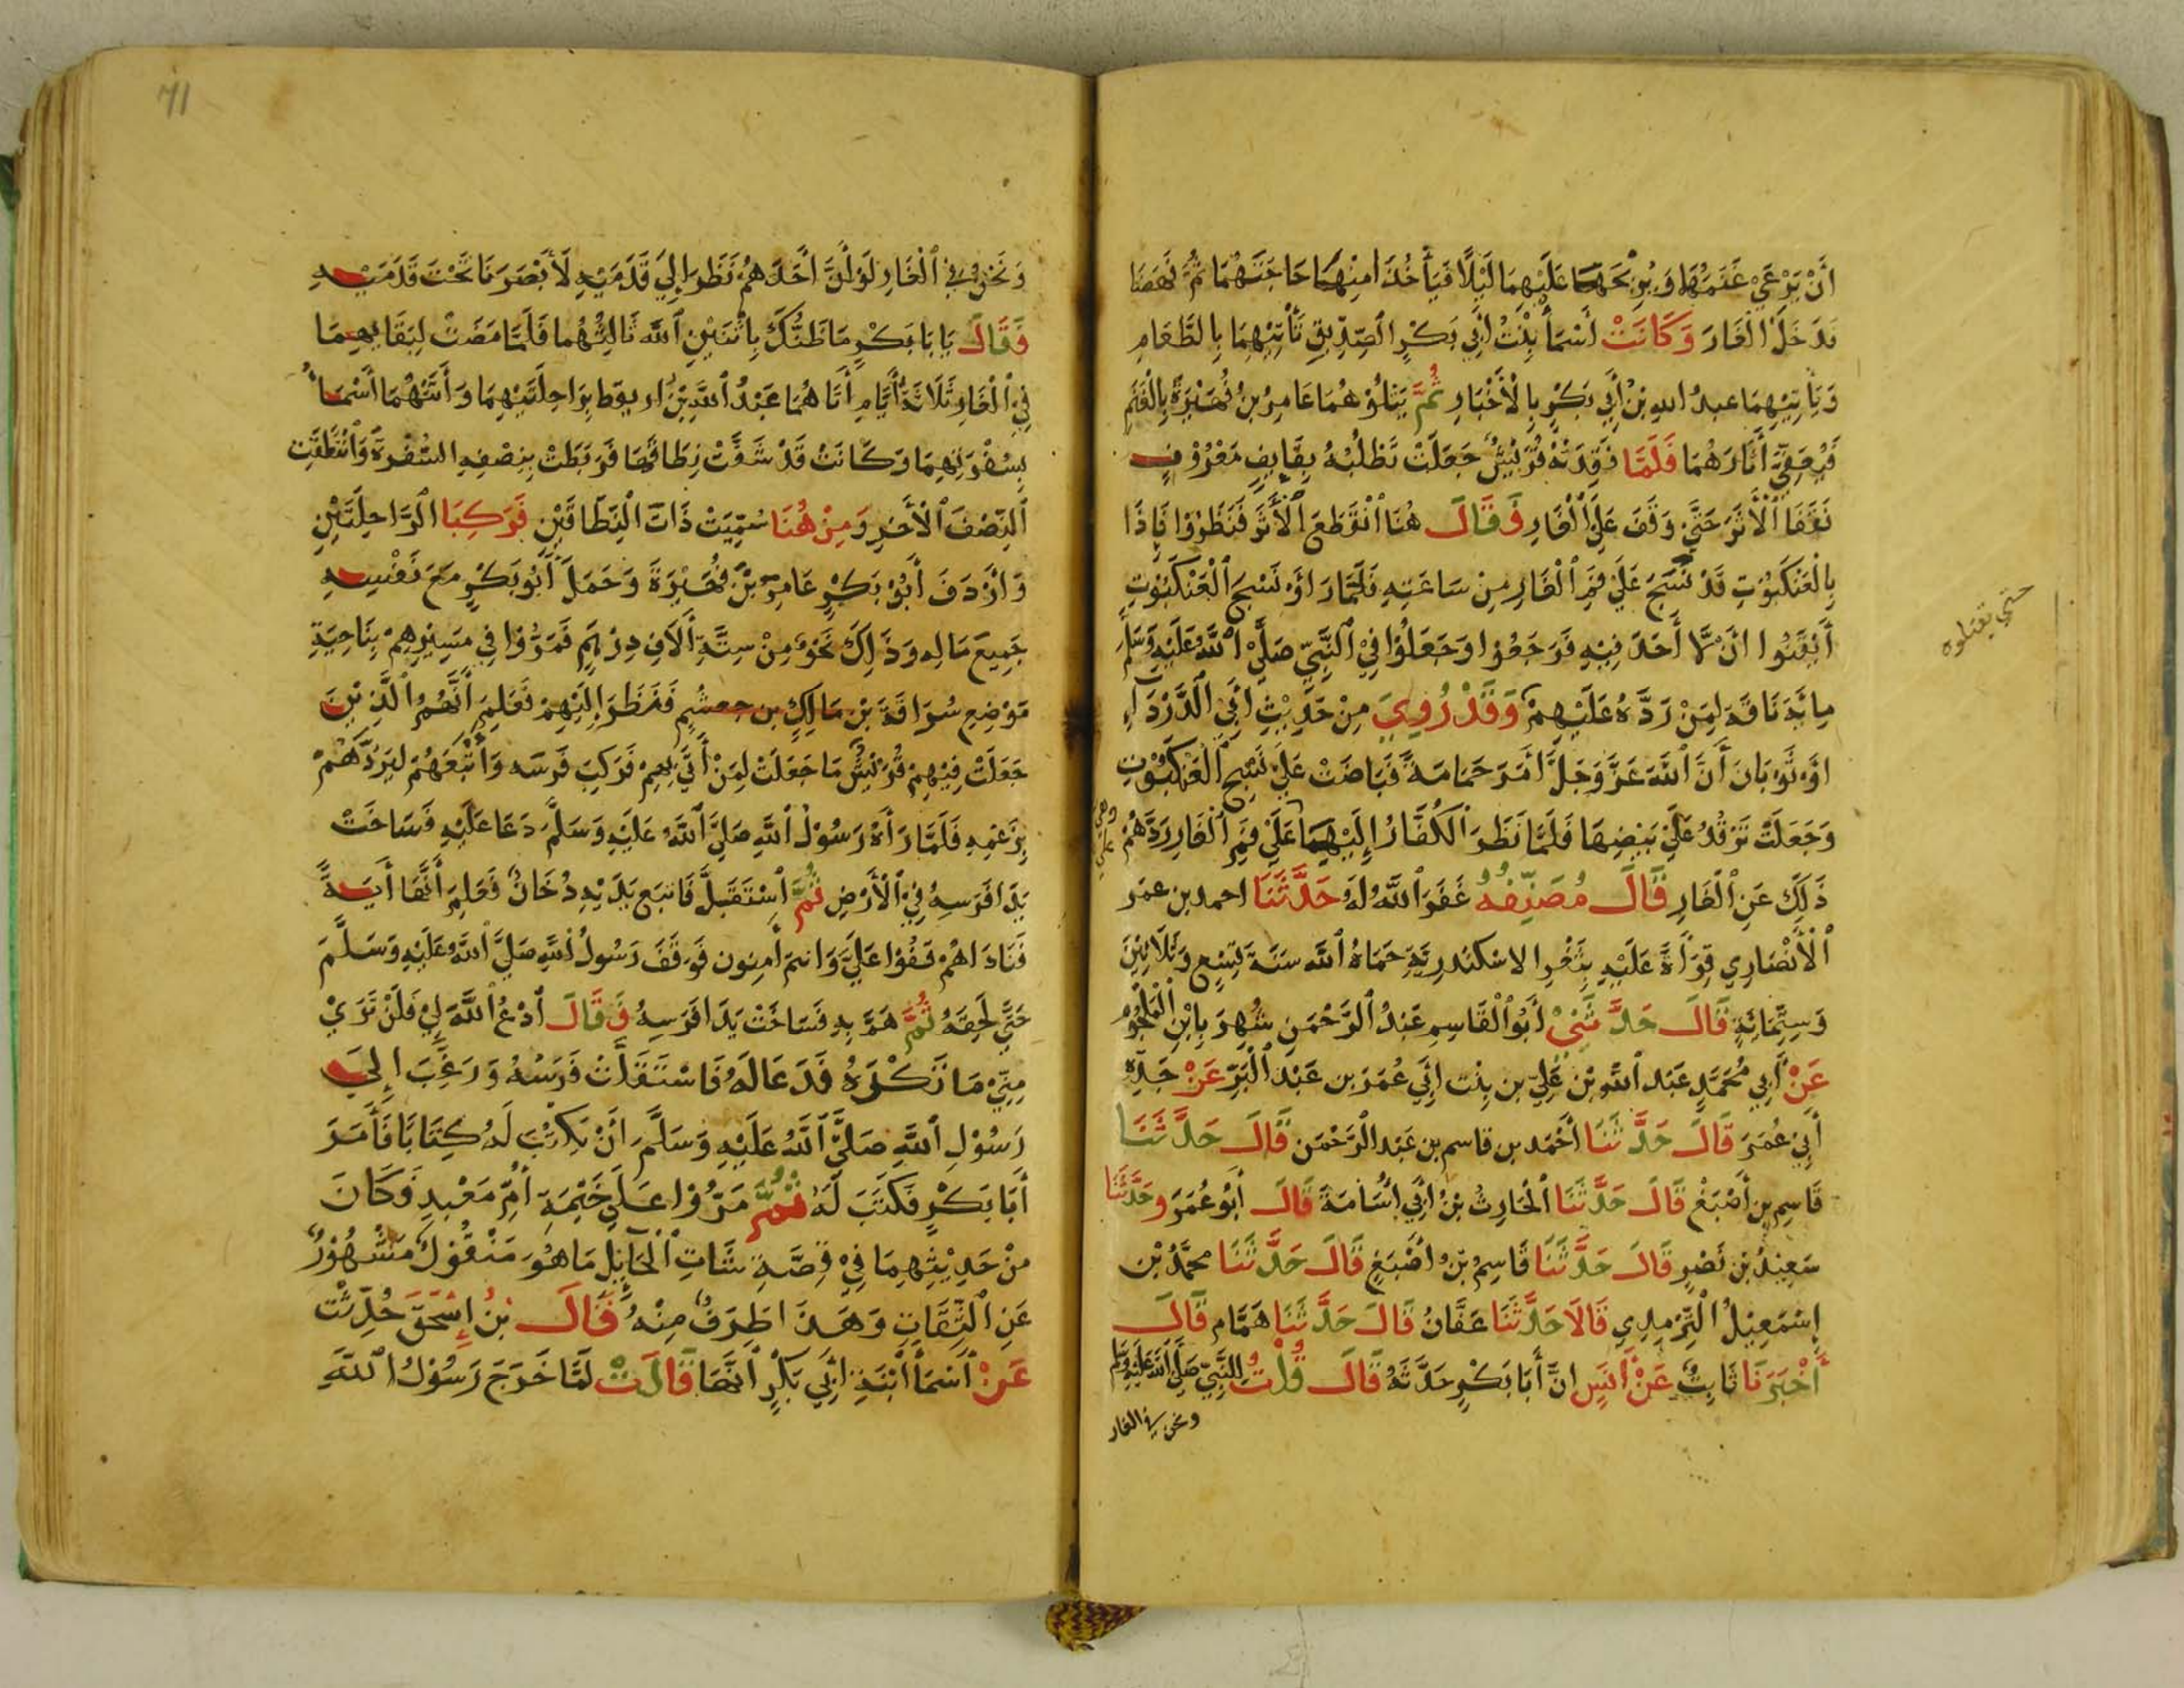 أَنْ يَرْعَيَ غَنَمَهَا وَيُرِيْحَهَا عَلَيْهِمَا لَيْلًا فَيَأْخُذَا مِنْهَا حَاجَتَهُمَا ثُمَّ نَهَضَا
فَدَخَلَا الْغَارَ وَكَانَتْ أَسْمَأُ بِنْتُ أَبِي بَكْرٍ الصِّدِّيقِ تَأْتِيْهِمَا بِالطَّعَامِ
وَيَأْتِيْهِمَا عبدُ اللهِ بْنُ أَبِي بَكْرٍ بِالْأَخْبَارِ ثُمَّ يَتْلُوْهُمَا عَامِرُ بْنُ فُهَيْرَةَ بِالْغَنَمِ
فَيُعَفِّيَ أَثَارَهُمَا فَلَمَّا فَقَدَتْهُ قُرَيْشٌ جَعَلَتْ تَطْلُبُهُ بِقَايِفٍ مَعْرُوْفٍ
فَقَفَا الْأَثَرَ حَتَّيْ وَقَفَ عَلَي الْغَارِ فَقَالَ هُنَا انْقَطَعَ الْأَثَرُ فَنَظَرُوْا فَإِذَا
بِالْعَنْكَبُوْتِ قَدْ نَسَجَ عَلَيْ فَمِ الْغَارِ مِنْ سَاعَتِهِ فَلَمَّا رَاوْ نَسْجَ الْعَنْكَبُوْتِ
أَيْقَنُوا انْ لَّا أَحَدَ فِيْهِ فَرَجَعُوْا وَجَعَلُوْا فِيْ النَّبِيِّ صَلَّيْ اللهُ عَلَيْهِ وَسَلَّمَ
مِائَةَ نَاقَةٍ لِمَنْ رَدَّهُ عَلَيْهِمْ وَقَدْ رُوِيَ مِنْ حَدِيْثِ أَبِي الدَّرْدَاءِ
اوْ ثَوْبَانَ أَنَّ اللهَ عَزَّ وَجَلَّ أَمَرَ حَمَامَةً فَبَاضَتْ عَلَيْ نَسْجِ الْعَنْكَبُوْتِ
وَجَعَلَتْ تَرْقُدُ عَلَيْ بَيْضِهَا فَلَمَّا نَظَرَ الْكُفَّارُ إِلَيْهِمَا عَلَيْ فَمِ الْغَارِ رَدَّهُمْ
ذَلِكَ عَنِ الْغَارِ قَالَ مُصَنِّفُهُ غَفَرَ اللهُ لَهُ حَدَّثَنَا احمد بن عمَر
الْأَنْصَارِي قِرَأَةً عَلَيْهِ بِثَغْرِ الاسْكَنْدرِيَّةِ حَمَاهُ اللهُ سَنَةَ تِسْعٍ وَثَلَاثِيْنَ
وَسِتِّمَائَةٍ قَالَ حَدَّثَنِيْ أَبُو الْقَاسِمِ عَبْدُ الرَّحْمَنِ شُهِرَ بِابْنِ
عَنْ أَبِي مُحَمَّدٍ عَبْدِ اللهِ بْنِ عَلِيِّ بن بِنْتِ ابِي عُمَرَ بن عَبْدِ الْبَرِّ عَنْ جَدِّهِ
أَبِيْ عُمَرَ قَالَ حَدَّثَنَا أَحْمَد بن قاسم بن عَبْد الرَّحْمَن قَالَ حَدَّثَنَا
قَاسِم بن أَصْبَغْ قَالَ حَدَّثَنَا الْحَارِثُ بْنُ ابِي أُسَامَةَ قَالَ أَبُوْ عُمَرَ وحَدَّثَنَا
سَعِيْدُ بْن نَصْرٍ قَالَ حَدَّثَنَا قَاسِمُ بْنُ أَصْبَغٍ قَالَ حَدَّثَنَا محمَّدُ بْن
إِسْمَعِيْلُ التِّرْمِذِي قَالَا حَدَّثَنَا عَفَّانُ قَالَ حَدَّثَنَا هَمَّام قَالَ
أَخْبَرَنَا ثَابِتٌ عَنْ أَنَسٍ انَّ أَبَا بَكْرٍ حَدَّثَهُ قَالَ قُلْتُ لِلنَّبِيِّ صَلَّى اللهُ عَلَيْهِ وَسَلَّم
ونحن في الغار
حتي يقتلوه
وَنَحْنُ فِي الْغَارِ لَوْ أَنَّ أَحَدَهُمْ نَظَرَ إِلَي قَدَمَيْهِ لَأَبْصَرَنَا تَحْتَ قَدَمَيْهِ
فَقَالَ يَابَا بَكْرٍ مَا ظَنُّكَ بِاثْنَيْنِ اللهُ ثَالِثُهُمَا فَلَمَّا مَضَتْ لِبَقَايِهِمَا
فِيْ الْغَارِ ثَلَاثَةُ أَيَّامٍ أَتَاهُمَا عَبْدُ اللهِ بْنُ اريقط بِرَاحِلَتَيْهِمَا وَأَتَتْهُمَا أَسْمَاُ
بِسُفْرَتِهِمَا وَكَانَتْ قَدْ شَقَّتْ نِطَاقَهَا فَرَبَطَتْ بِنِصْفِهِ السُّفْرَةَ وَانْتَطَقَتْ
النِّصْفَ الْأَخَرِ وَمِنْ هُنَا سُمِّيَتْ ذَاتَ النِّطَاقَيْنِ فَرَكِبَا الرَّاحِلَتَيْنِ
وَارْدَفَ أَبُوْ بَكْرٍ عَامِرَ بْنَ فُهَيْرَةَ وَحَمَلَ أَبُو بَكْرٍ مَعَ نَفْسِهِ
جَمِيعَ مَالِه وَذَلِكَ نَحْوٌ مِنْ سِتَّةِ أَلَافِ دِرْهَمٍ فَمَرُّوْا فِي مَسِيْرِهِمْ بِنَاحِيَةِ
مَوْضِعِ سُرَاقَةَ بْن مَالِكٍ بن جعشُمٍ فَنَظَرَ إِلَيْهِمْ فَعَلِمَ أَنَّهُمُ الَّذِيْنَ
جَعَلَتْ فِيْهِمْ قُرَيْشٌ مَا جَعَلَتْ لِمَنْ أَتَي بِهِمْ فَرَكِبَ فَرَسَه وَاتَّبَعَهُمْ لِيَرُدَّهُمْ
بِزَعْمِهِ فَلَمَّا رَأَهُ رَسُوْلُ اللهِ صَلَّيَ اللهُ عَلَيْهِ وَسَلَّمَ دَعَا عَلَيْهِ فَسَاخَتْ
يَدَا فَرَسِهُ فِيْ الْأَرْضِ ثُمَّ اسْتَقَبَلَّ فَاتبَع يَدَيْهِ دُخَانٌ فَعَلِمَ أَنَّهَا أَيَةً
فَنَادَاهُمْ قِفُوْا عَلَيَّ وَانتم أَمِنون فَوَقَفَ رَسُولُ اللهِ صَلَّيَ اللهُ عَلَيْهِ وَسَلَّمَ
حَتَّيَ لَحِقَهُ ثُمَّ هَمَّ بِهِ فَسَاخَتْ يَدَا فَرَسِهُ فَقَالَ ادْعُ اللهَ لِيْ فَلَنْ تَرَيْ
مِنِّيْ مَا تَكْرَهُ فَدَعَا لَهُ فَاسْتَقَلَّتْ فَرَسُهُ وَرَغِبَ إِلَيَ
رَسُوْلِ اللهِ صَلَّيَ اللهُ عَلَيْهِ وَسَلَّمَ انْ يَكْتُبَ لَهُ كِتَابًا فَأَمَرَ
أَبَا بَكْرٍ فَكَتَبَ لَهُ ثُمَّ مَرُّوْا عَلَي خَيْمَةِ أُمِّ مَعْبدٍ فَكَانَ
مِنْ حَدِيْثِهِمَا فِيْ قِصَّةِ شَاتِ الْحَايِلِ مَا هُوَ مَنْقُوْلٌ مَشْهُوْرٌ
عَنِ الثِّقَاتِ وَهَذَا طَرَفٌ مِنْهُ قَالَ بْنُ إِسْحَقَ حُدِّثْت
عَنْ أَسْمَأَ ابْنَةِ ابِي بَكْرٍ انَّهَا قَالَتْ لَمَّا خَرَجَ رَسُوْلُ اللهِ
71